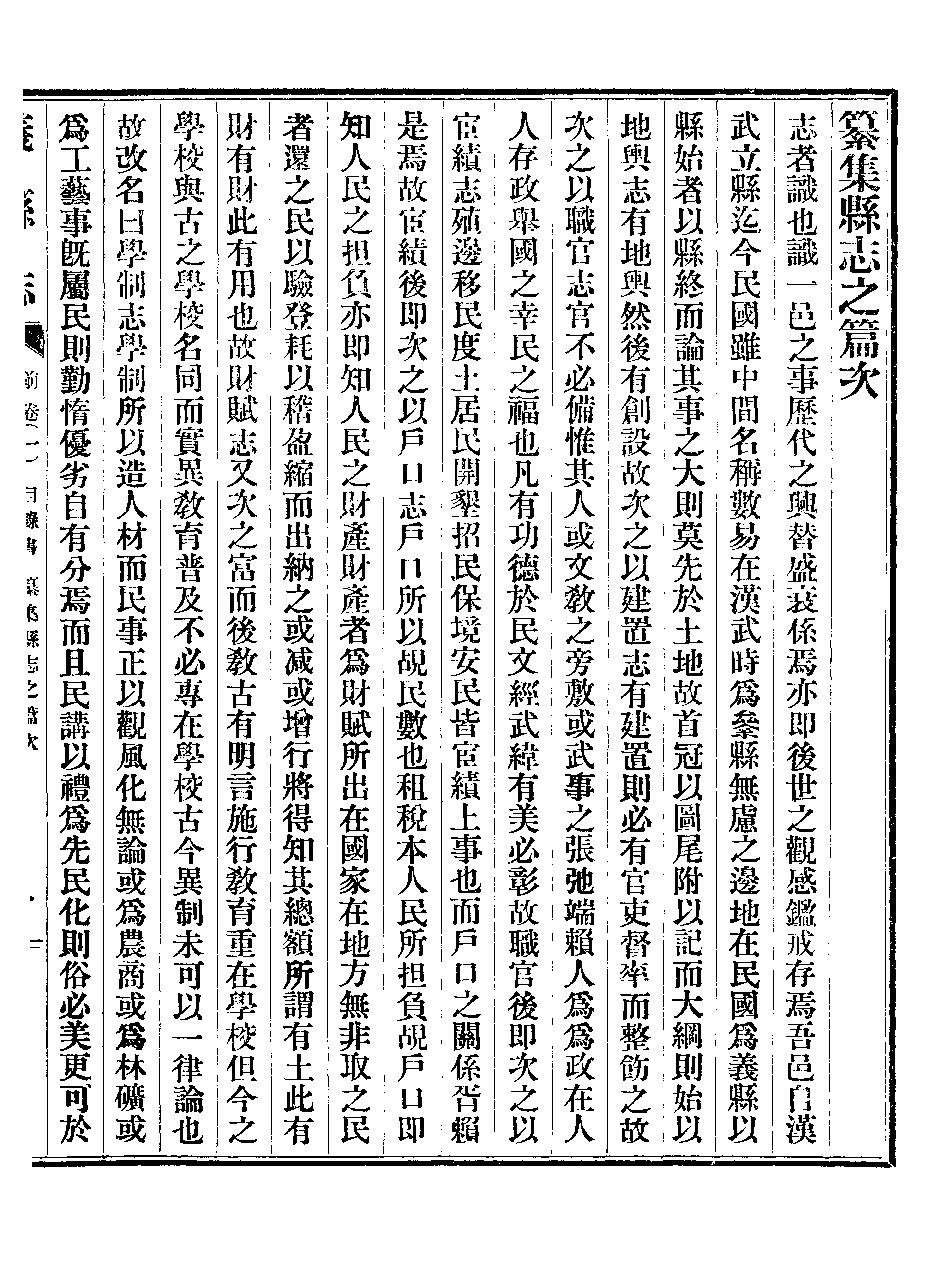 纂集縣志之篇次
志者識也識一邑之事歷代之興替盛衰係焉亦即後世之觀感鑑戒存焉吾邑自漢
武立縣迄今民國雖中間名稱數易在漢武時爲絫縣無慮之邊地在民國爲義縣以
縣始者以縣終而論其事之大則莫先於土地故首冠以圖尾附以記而大綱則始以
地輿志有地輿然後有創設故次之以建置志有建置則必有官吏督率而整飭之故
次之以職官志官不必備惟其人或文敎之旁敷或武事之張弛端賴人爲爲政在人
人存政舉國之幸民之福也凡有功德於民文經武緯有美必彰故職官後即次之以
宦績志殖邊移民度土居民開墾招民保境安民皆宦績上事也而戶口之關係胥賴
是焉故宦績後即次之以戶口志戶口所以覘民數也租稅本人民所担負覘戶口即
知人民之担負亦即知人民之財產財產者爲財賦所出在國家在地方無非取之民
者還之民以驗登耗以稽盈縮而出納之或減或增行將得知其總額所謂有土此有
財有財此有用也故財賦志又次之富而後敎古有明言施行敎育重在學校但今之
學校與古之學校名同而實異敎育普及不必專在學校古今異制未可以一律論也
故改名曰學制志學制所以造人材而民事正以觀風化無論或爲農商或爲林礦或
爲工藝事旣屬民則勤惰優劣自有分焉而且民講以禮爲先民化則俗必美更可於
義縣志 前卷 目錄 纂集縣志之篇次